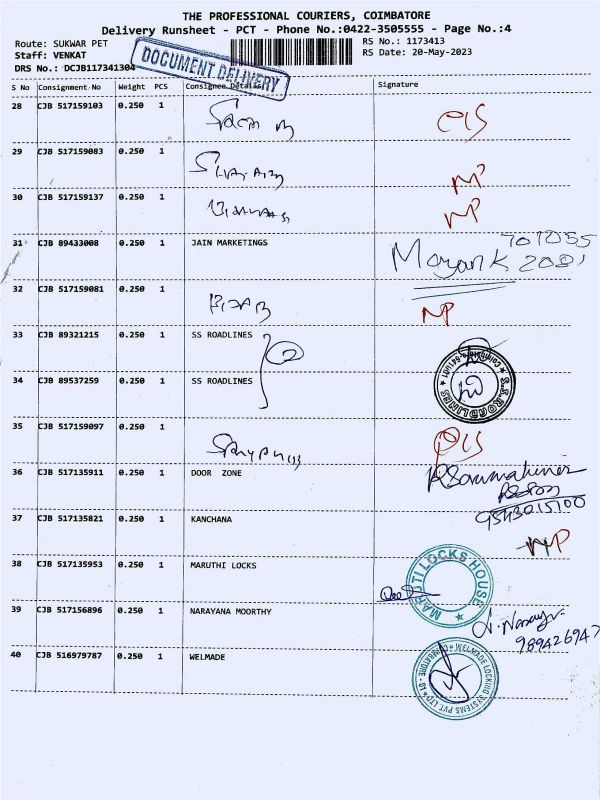 THE PROFESSIONAL COURIERS, COIMBATORE
Delivery Runsheet - PCT - Phone No.:0422-3505555 - Page No.:4
Route: SUKWAR PET
RS No.: 1173413
Staff: VENKAT
RS Date: 20-May-2023
DRS No.: DCJB117341304
DOCUMENT DELIVERY
S No Consignment No Weight PCS Consignee Details Signature
28 CJB 517159103 0.250 1
29 CJB 517159083 0.250 1 NP
30 CJB 517159137 0.250 1 NP
31 CJB 89433008 0.250 1 JAIN MARKETINGS Mayank
32 CJB 517159081 0.250 1 NP
33 CJB 89321215 0.250 1 SS ROADLINES
34 CJB 89537259 0.250 1 SS ROADLINES
S.S.ROADLINES
35 CJB 517159097 0.250 1
36 CJB 517135911 0.250 1 DOOR ZONE
37 CJB 517135821 0.250 1 KANCHANA NP
38 CJB 517135953 0.250 1 MARUTHI LOCKS
MARUTI LOCKS HOUSE
39 CJB 517156896 0.250 1 NARAYANA MOORTHY
989426947
40 CJB 516979787 0.250 1 WELMADE
WELMADE LOCKING SYSTEMS PVT. LTD